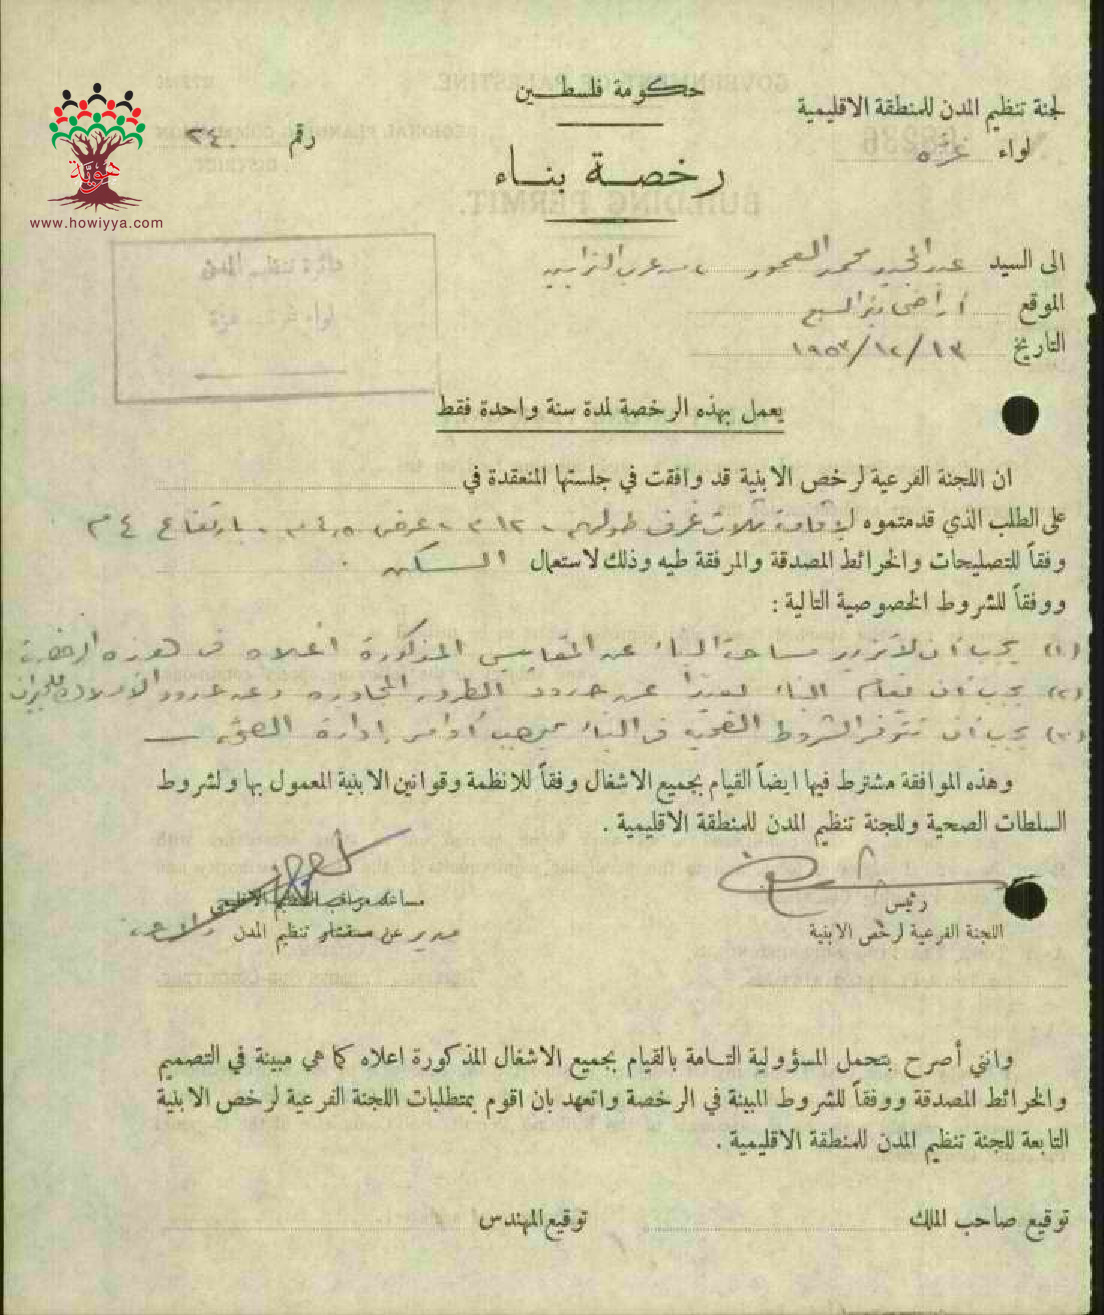 حكومة فلسطين
لجنة تنظيم المدن للمنطقة الاقليمية
لواء غزه
رقم ٢٤٠
هوية
www.howiyya.com
رخصة بناء
الى السيد عبد المجيد محمد من عرب الترابين
الموقع اراضي بئر السبع
التاريخ ١٣/١٢/١٩٥٣
دائرة تنظيم المدن
لواء غزة - غزة
يعمل بهذه الرخصة لمدة سنة واحدة فقط
ان اللجنة الفرعية لرخص الابنية قد وافقت في جلستها المنعقدة في
على الطلب الذي قدمتموه لإقامة ثلاث غرف طولهم ١٢ عرض بارتفاع ٤ م
وفقاً للتصليحات والخرائط المصدقة والمرفقة طيه وذلك لاستعمال السكن
ووفقاً للشروط الخصوصية التالية :
(١) يجب أن لا تزيد مساحة البناء عن المقاييس المذكورة اعلاه في هذه الرخصة
(٢) يجب أن يقام البناء بعيدا عن حدود الطرق المجاوره وعن حدود
(٣) يجب أن تتوفر الشروط الصحية في البناء بموجب أوامر إدارة الصحة
وهذه الموافقة مشترط فيها ايضاً القيام بجميع الاشغال وفقاً للانظمة وقوانين الابنية المعمول بها ولشروط
السلطات الصحية وللجنة تنظيم المدن للمنطقة الاقليمية .
رئيس
اللجنة الفرعية لرخص الابنية
مدير عن مستشار تنظيم المدن
وانني أصرح بتحمل المسؤولية التامة بالقيام بجميع الاشغال المذكورة اعلاه كما هي مبينة في التصميم
والخرائط المصدقة ووفقاً للشروط المبينة في الرخصة واتعهد بان اقوم بمتطلبات اللجنة الفرعية لرخص الابنية
التابعة للجنة تنظيم المدن للمنطقة الاقليمية .
توقيع صاحب الملك
توقيع المهندس